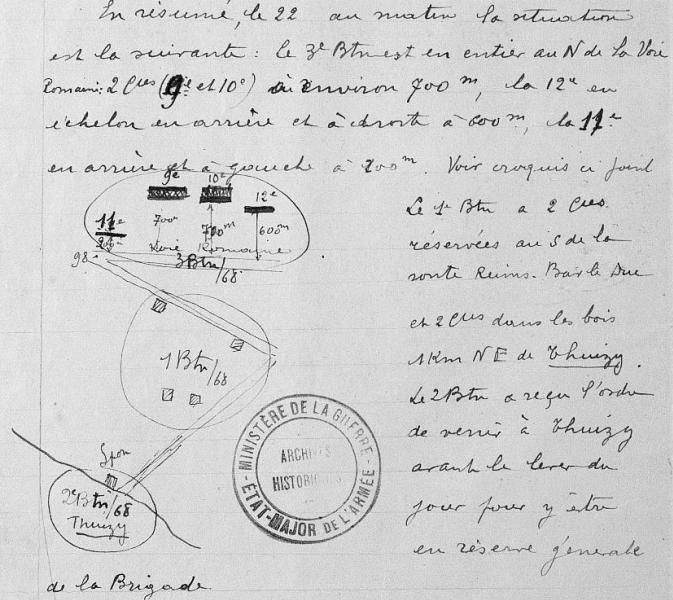 En résumé, le 22 au matin la situation
est la suivante : le 3e Btn est en entier au N de la Voie
Romaine: 2 Cies (9e et 10e) à environ 700m, la 12e en
échelon en arrière et à droite à 600m, la 11e
en arrière et à gauche à 200m. Voir croquis ci joint
9e 10e 12e
11e 700m 700m 600m
200m Voie Romaine
98. 3Btn/68
1 Btn/68
Lyon
2e Btn/68
Thuizy
Le 1e Btn a 2 Cies.
réservées au S de la
route Reims. Bar le Duc
et 2 Cies dans les bois
1Km NE de Thuizy.
Le 2 Btn a reçu l'ordre
de venir à Thuizy
avant le lever du
jour pour y être
en réserve générale
de la Brigade.
MINISTÈRE DE LA GUERRE
ARCHIVES
HISTORIQUES
ÉTAT-MAJOR DE L'ARMÉE